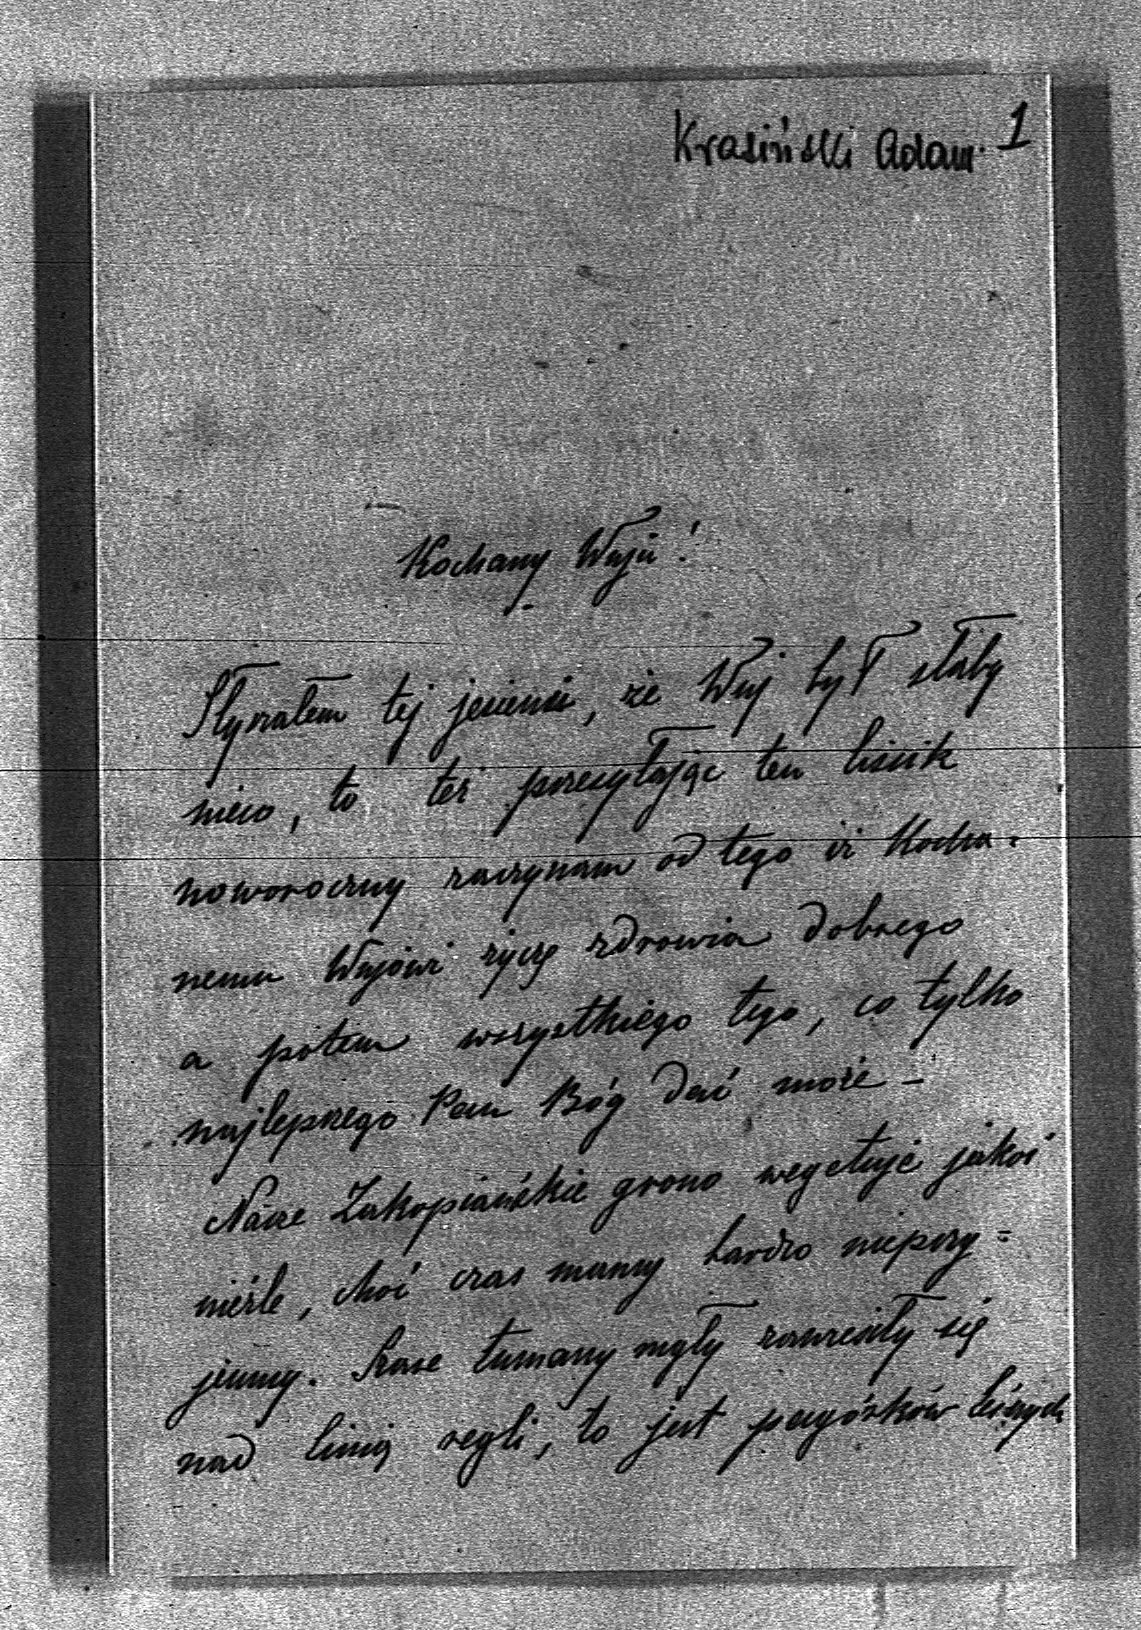 Krasiński Adam. 1
Kochany Wuju!
Słyszałem tej jesieni, że Wuj był słaby
nieco, to też przesyłając ten liścik
noworoczny zaczynam od tego iż Kocha-
nemu Wujowi życzę zdrowia dobrego
a potem wszystkiego tego, co tylko
najlepszego Pan Bóg dać może -
Nasze Zakopiańskie grono wegetuje jakoś
nieźle, choć czas mamy bardzo nieprzy=
jemny. Szare tumany mgły zawiesiły się
nad linią regli, to jest pagórków leśnych